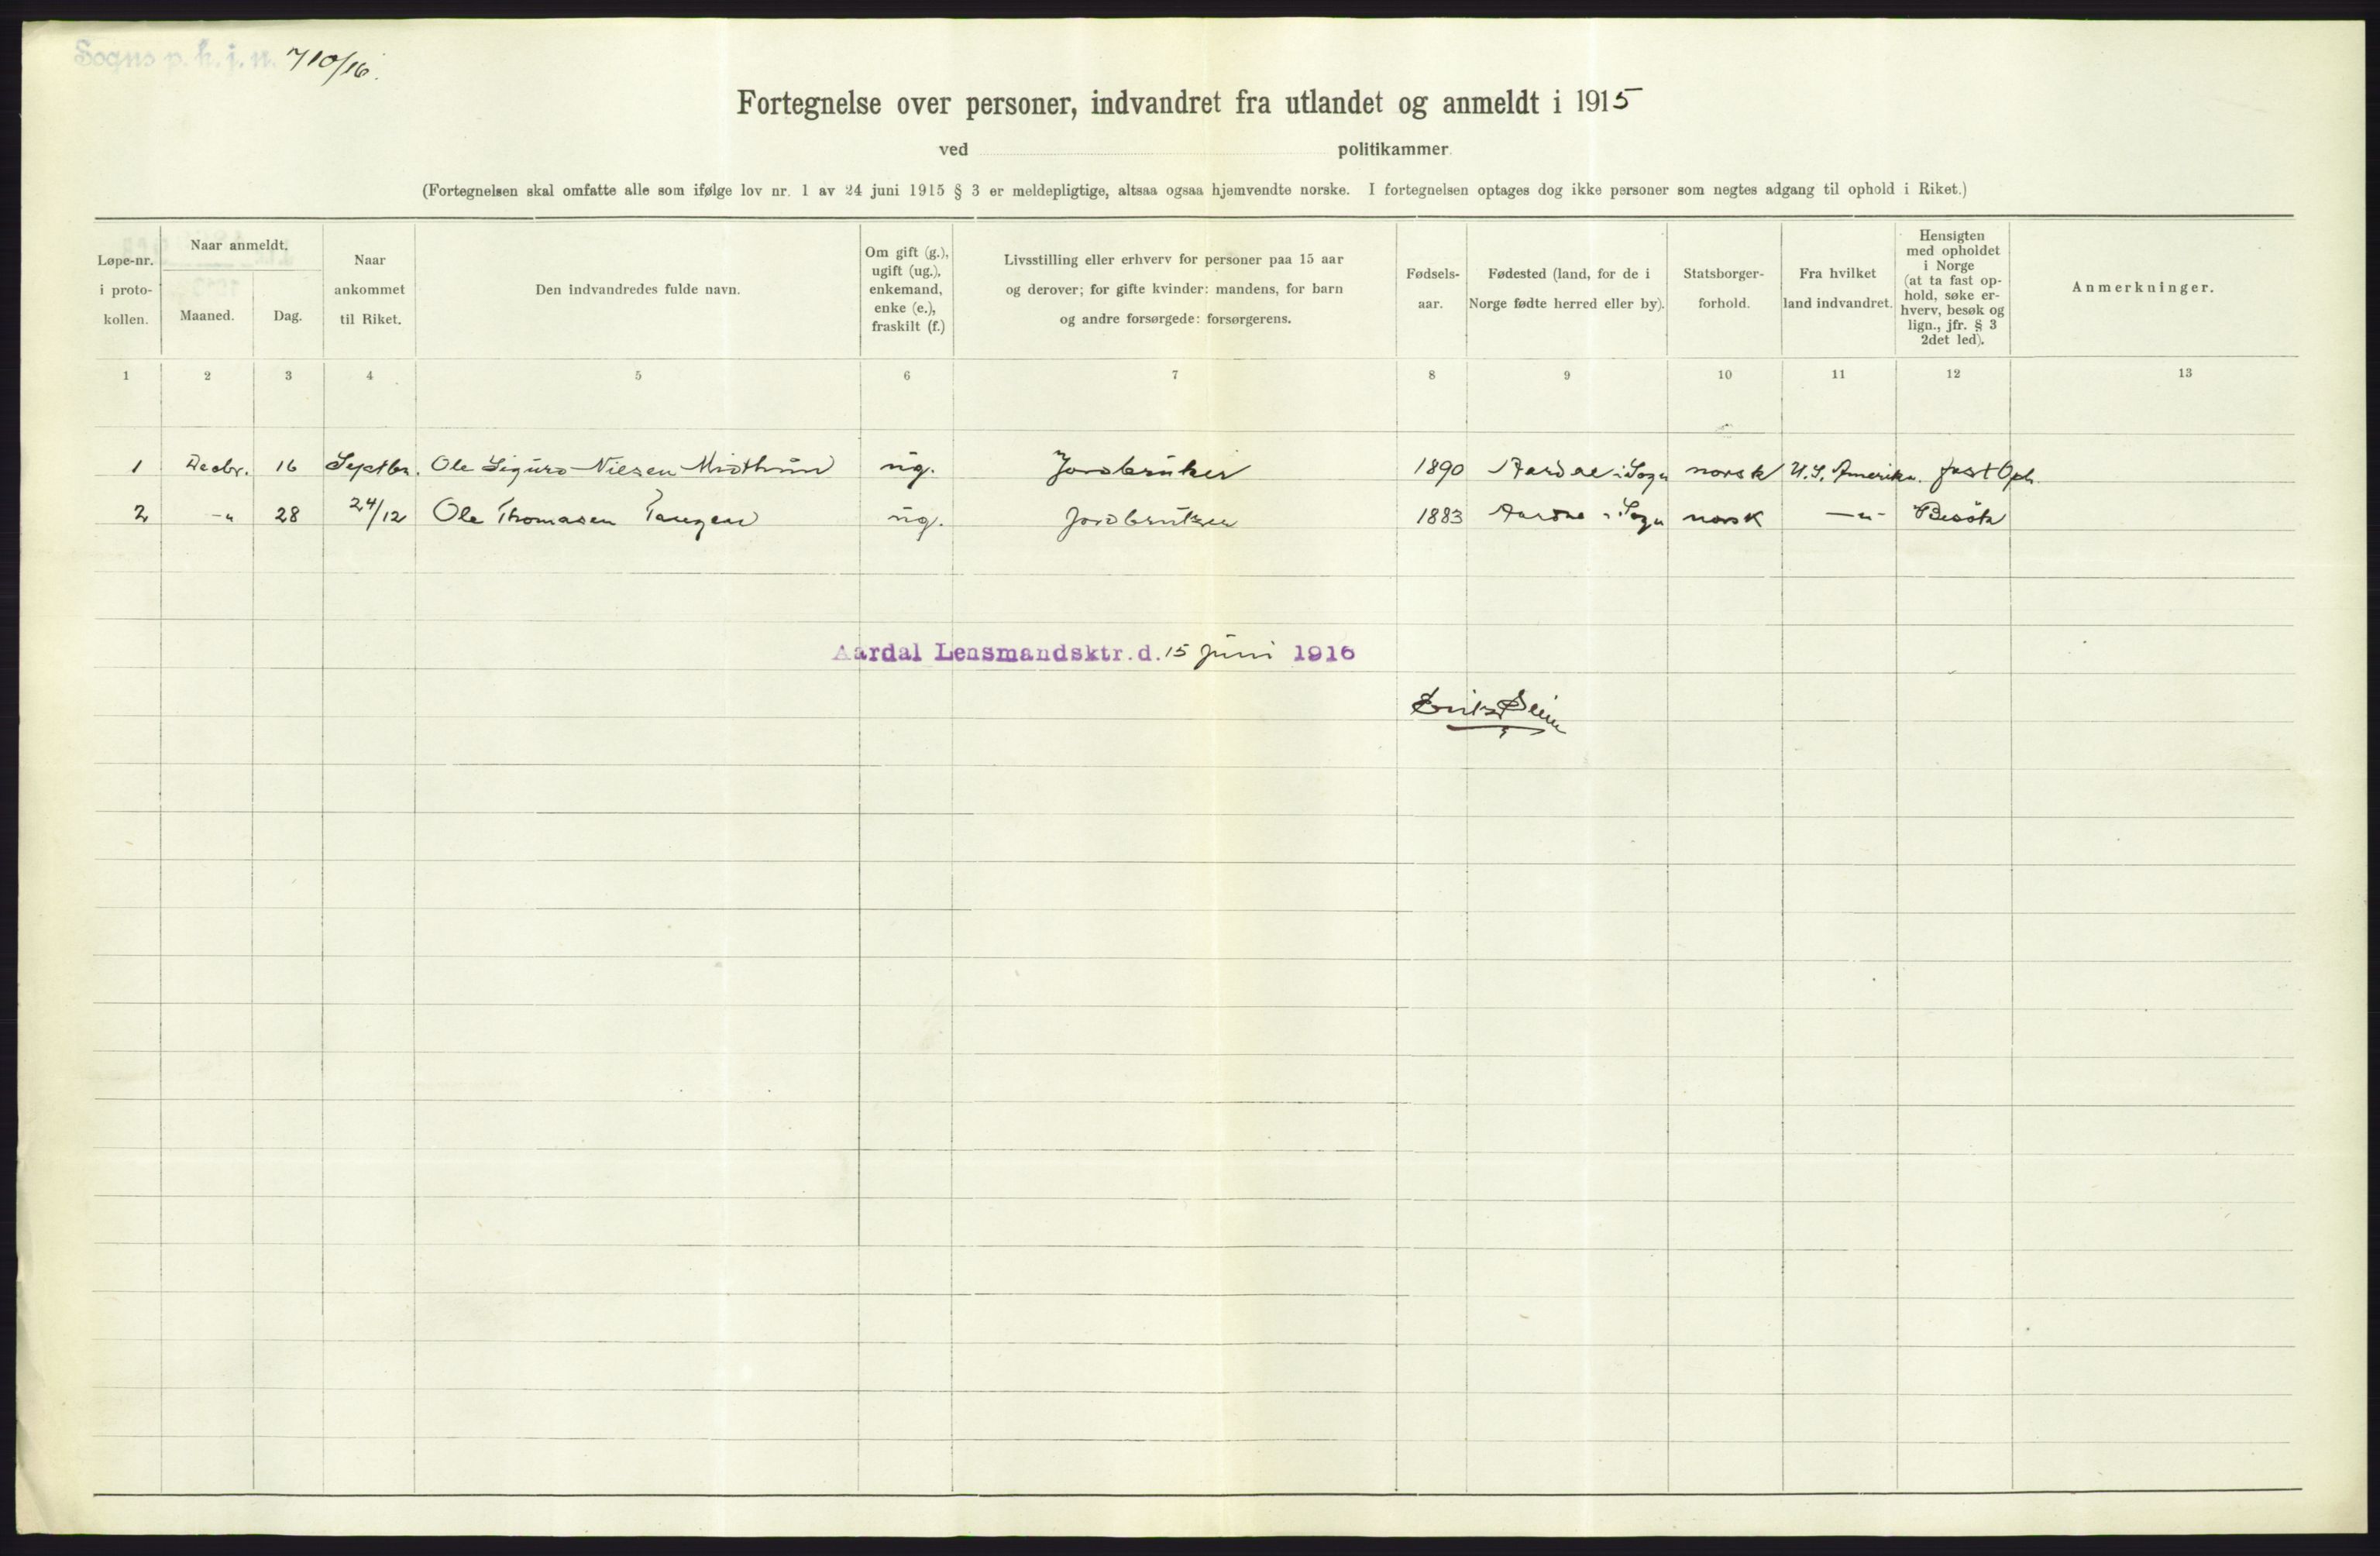 Sogns p. k. j. n. 710/16.
Fortegnelse over personer, indvandret fra utlandet og anmeldt i 1915
ved politikammer.
(Fortegnelsen skal omfatte alle som ifølge lov nr. 1 av 24 juni 1915 § 3 er meldepligtige, altsaa ogsaa hjemvendte norske. I fortegnelsen optages dog ikke personer som negtes adgang til ophold i Riket.)
Løpe-nr. i proto- kollen.
Naar anmeldt.
Maaned.
Dag.
Naar ankommet til Riket.
Den indvandredes fulde navn.
Om gift (g.), ugift (ug.), enkemand, enke (e.), fraskilt (f.)
Livsstilling eller erhverv for personer paa 15 aar
og derover; for gifte kvinder: mandens, for barn
og andre forsørgede: forsørgerens.
Fødsels- aar.
Fødested (land, for de i
Norge fødte herred eller by).
Statsborger- forhold.
Fra hvilket land indvandret.
Hensigten
med opholdet
i Norge
(at ta fast op-
hold, søke er-
hverv, besøk og
lign., jfr. § 3
2det led).
Anmerkninger.
1 2 3 4 5 6 7 8 9 10 11 12 13
1 Decbr. 16 Septbr. Ole Sigurd Nilsen Midthun ug. Jordbruker 1890 Aardal i Sogn norsk U.S. Amerika. fast Oph.
2 -"- 28 24/12 Ole Thomasen Tangen ug. Jordbruker 1883 Aardal i Sogn norsk -"- Besök
Aardal Lensmandsktr. d. 15 juni 1916